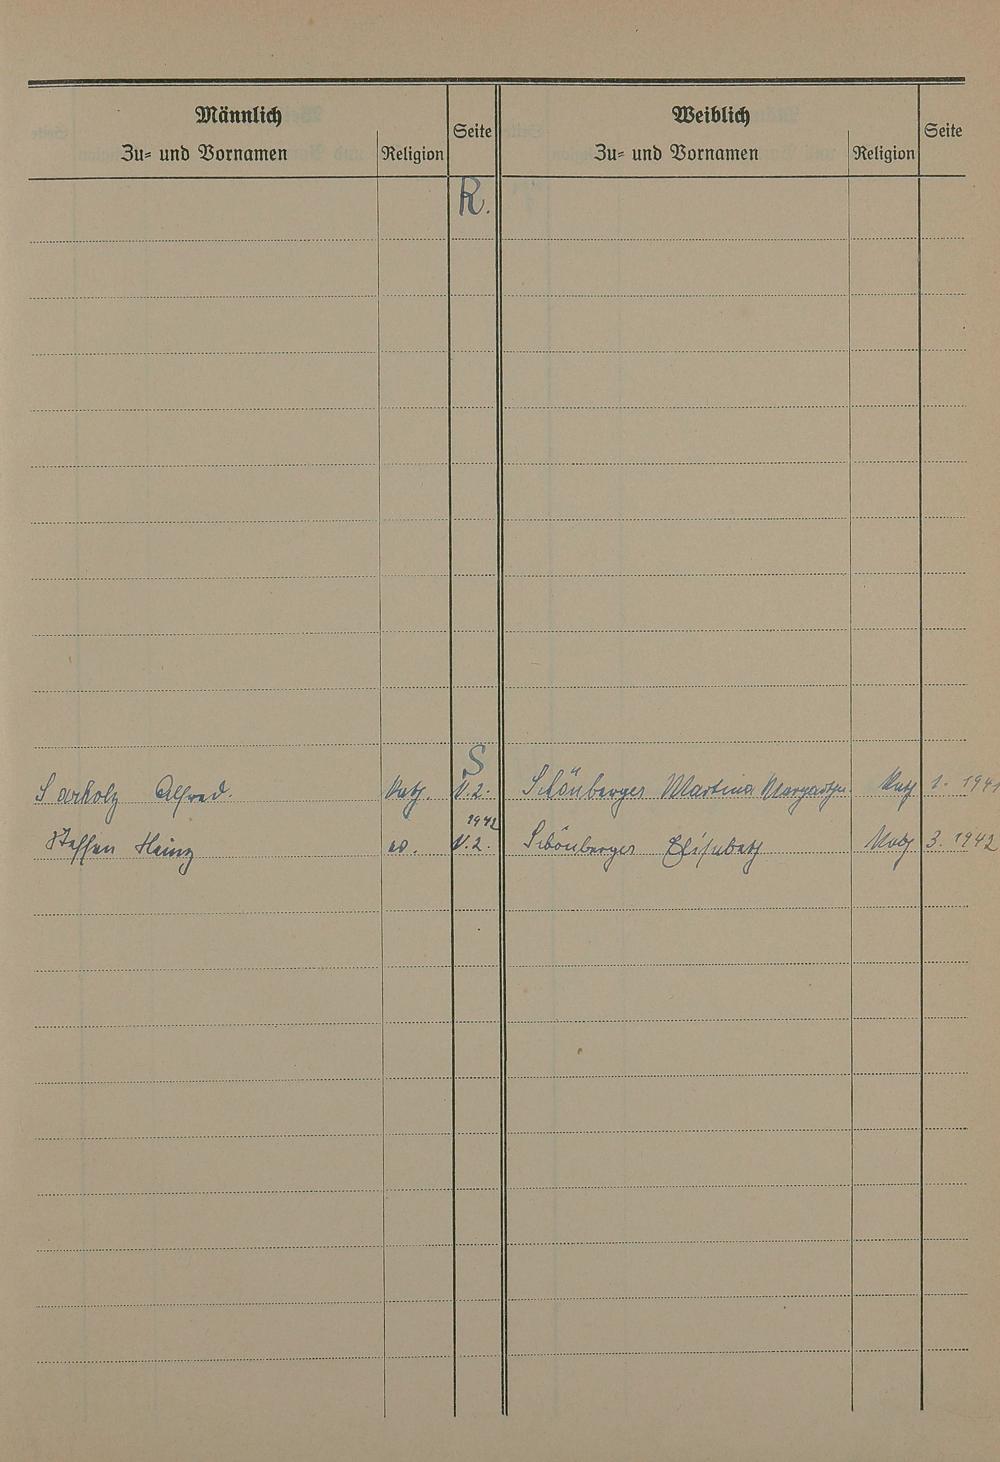 Männlich
Zu- und Vornamen Religion Seite
Weiblich
Zu- und Vornamen Religion Seite
R.
S
Sarholz Alfred. Kath. V.2. Schönberger Martina Kath 1. 1941
1942
Steffen Heinz ev. V.2. Schönberger Elisabeth Kath 3. 1942